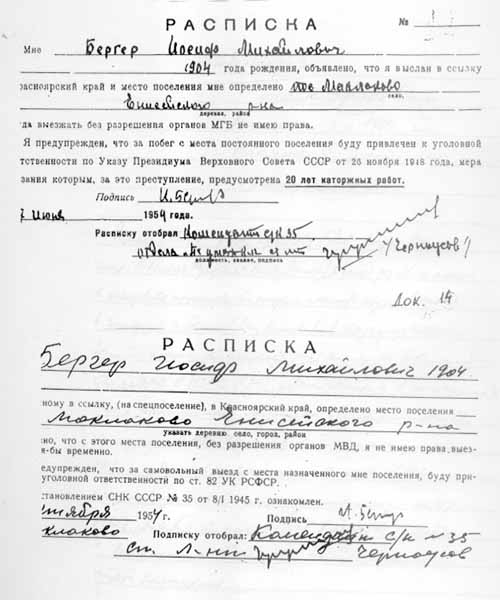 РАСПИСКА №
Мне Бергер Иосиф Михайлович
1904 года рождения, объявлено, что я выслан в ссылку
расноярский край и место поселения мне определено пос Маклаково
село,
Енисейского р-на
деревня, район
да выезжать без разрешения органов МГБ не имею права.
Я предупрежден, что за побег с места постоянного поселения буду привлечен к уголовной
тственности по Указу Президиума Верховного Совета СССР от 26 ноября 1948 года, мера
зания которым, за это преступление, предусмотрена 20 лет каторжных работ.
Подпись И. Бергер
7 июня 1954 года.
Расписку отобрал Комендант с/к 35
отдела /Черноусов/
должность, звание, подпись
Док. 14
РАСПИСКА
Бергер Иосиф Михайлович 1904
ному в ссылку, (на спецпоселение), в Красноярский край, определено место поселения
Маклаково Енисейского р-на
указать деревню село, город, район
но, что с этого места поселения, без разрешения органов МВД, я не имею права выез-
я-бы временно.
едупрежден, что за самовольный выезд с места назначенного мне поселения, буду при-
уголовной ответственности по ст. 82 УК РСФСР.
становлением СНК СССР № 35 от 8/I 1945 г. ознакомлен.
1954 г. Подпись И. Бергер
клаково Подписку отобрал: Комендант с/к № 35
ст. л-нт Черноусов